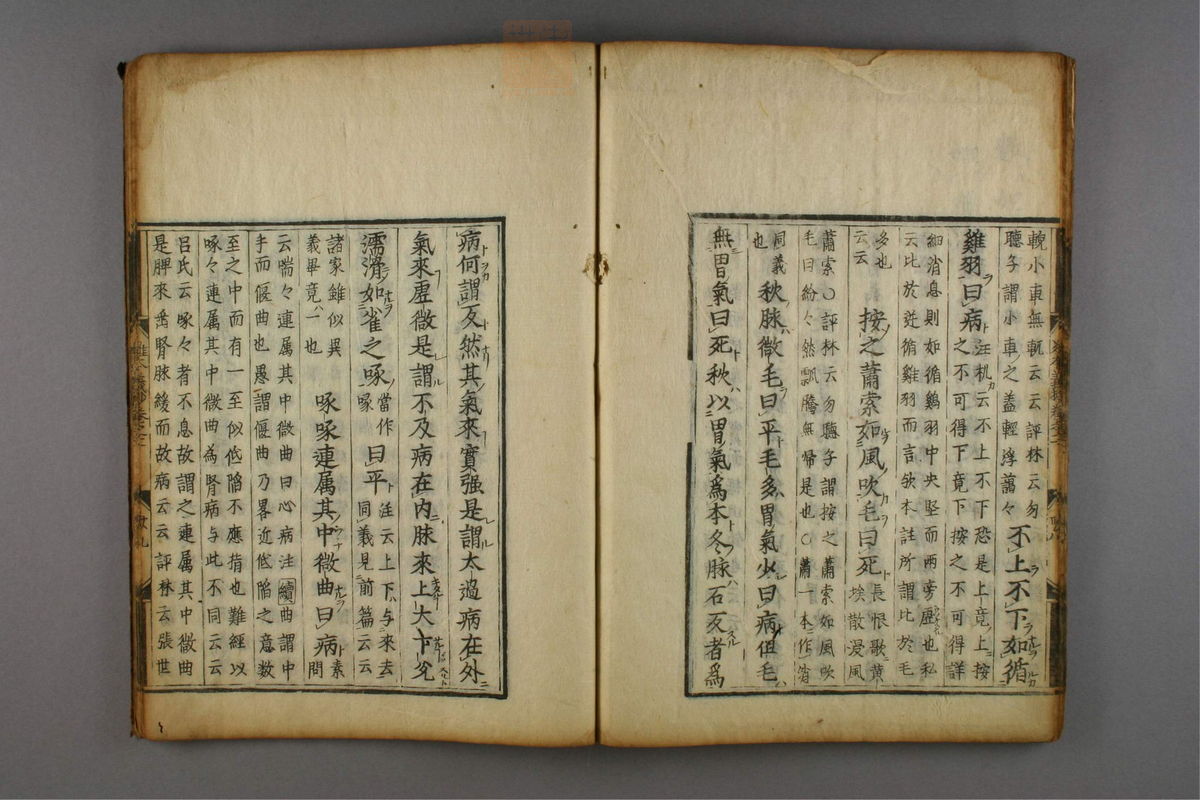 輗小車無軏云云評林云勿
聽子謂小車之蓋輕浮藹々
不上不下如循
雞羽曰病
注机云不上不下恐是上竟上按
之不可得下竟下按之不可得詳
細消息則如循鷄羽中央堅而兩旁虛也私
云比於逆循雞羽而言欤本註所謂比於毛
多也
云云
按之蕭索如風吹毛曰死
長恨歌黃
埃散漫風
蕭索○評林云勿聽子謂按之蕭索如風吹
毛曰紛々然飄騰無歸是也○蕭一本作
同義
也
秋脉微毛曰平毛多胃氣少曰病但毛
無胃氣曰死秋以胃氣爲本冬脉石反者爲
病何謂反然其氣來實强是謂太過病在外
氣來虛微是謂不及病在内脉來上大下兊
濡滑如雀之啄
當作
啄
曰平
注云上下与來去
同義見前篇云云
諸家雖似異
義畢竟一也
啄啄連属其中微曲曰病
素
問
云喘々連属其中微曲曰心病注續曲謂中
手而偃曲也愚謂偃曲乃畧近低陷之意数
至之中而有一至似低陷不應指也難經以
啄々連属其中微曲為腎病与此不同云云
呂氏云啄々者不息故謂之連属其中微曲
是脾來乗腎脉緩而故病云云評林云張世